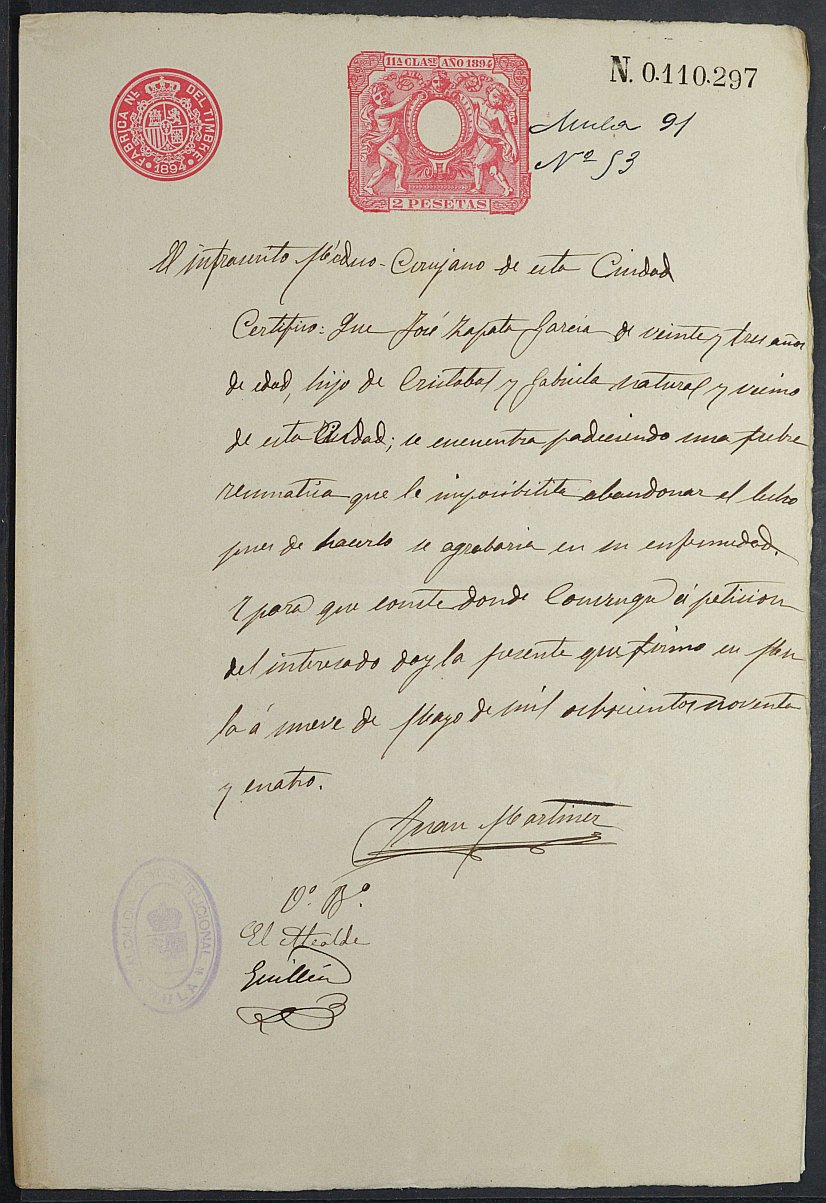 FABRICA NL. DEL TIMBRE
1894
11A CLASE AÑO 1894
2 PESETAS
N. 0.110.297
Mula 91
Nº 53
El infrascrito Médico-Cirujano de esta Ciudad
Certifico: Que José Zapata Garcia de veinte y tres años
de edad, hijo de Cristobal y Gabriela natural y vecino
de esta Ciudad; se encuentra padeciendo una fiebre
reumatica que le imposibilita abandonar el lecho
pues de hacerlo se agrabaria en su enfermedad.
Y para que conste donde convenga á peticion
del interesado doy la presente que firmo en Mu
la á nueve de Mayo de mil ochocientos noventa
y cuatro.
Juan Martinez
Vº. Bº.
El Alcalde
Guillén
ALCALDIA CONSTITUCIONAL
MULA